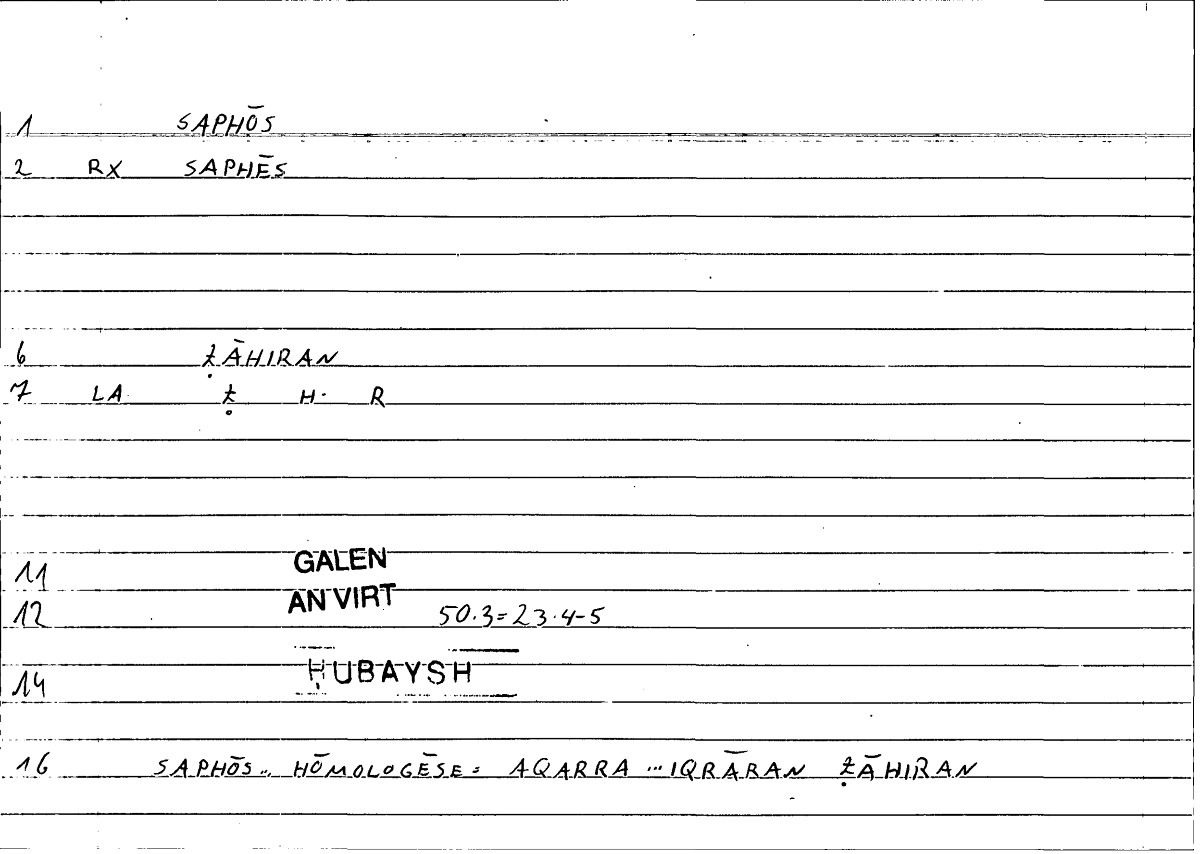 1 SAPHŌS
2 RX SAPHĒS
6 ẒĀHIRAN
7 LA Ẓ H R
11 GALEN
12 AN VIRT 50.3=23.4-5
14 ḤUBAYSH
16 SAPHŌS.. HŌMOLOGĒSE = AQARRA ... IQRĀRAN ẒĀHIRAN